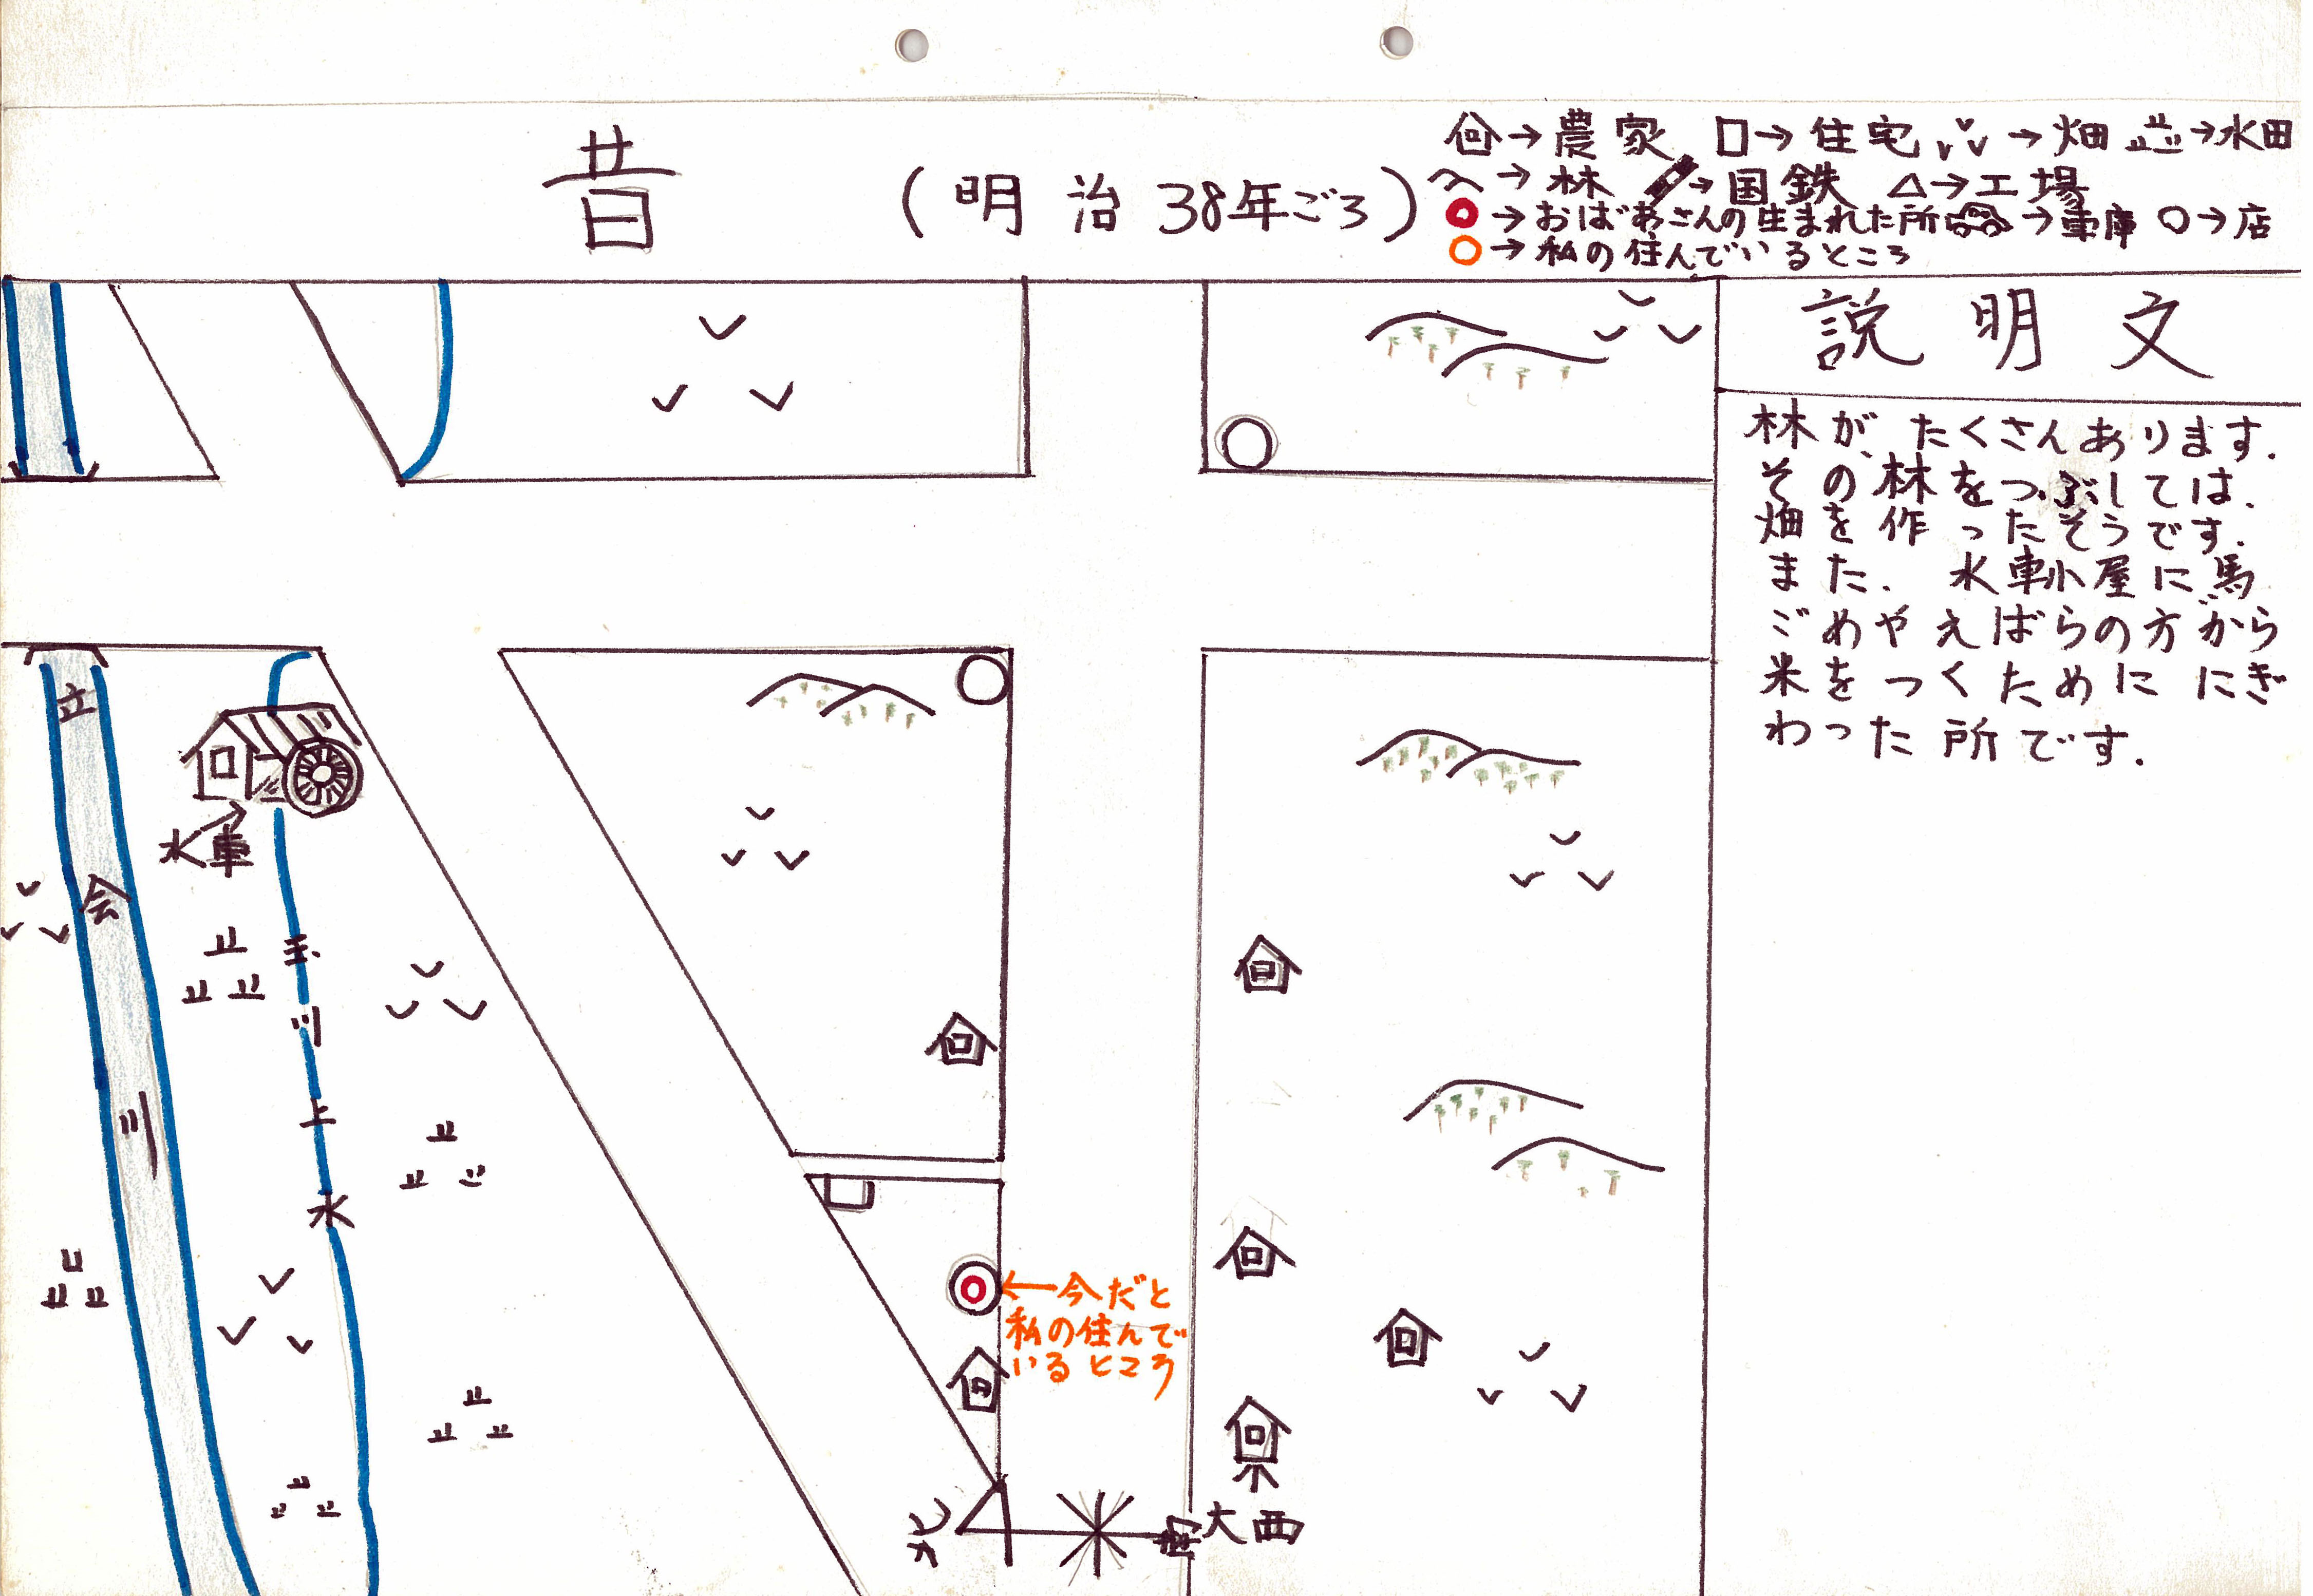 昔 (明治38年ごろ)
→農家 →住宅 →畑 →水田
→林 →国鉄 →工場
→おばあさんの生まれた所 →車庫 →店
→私の住んでいるところ
説明文
林が、たくさんあります.
その林をつぶしては.
畑を作ったそうです.
また. 水車小屋に馬
ごめやえばらの方から
米をつくために にぎ
わった所です.
立会川
水車
玉川上水
←今だと
私の住んで
いるところ
北
大西